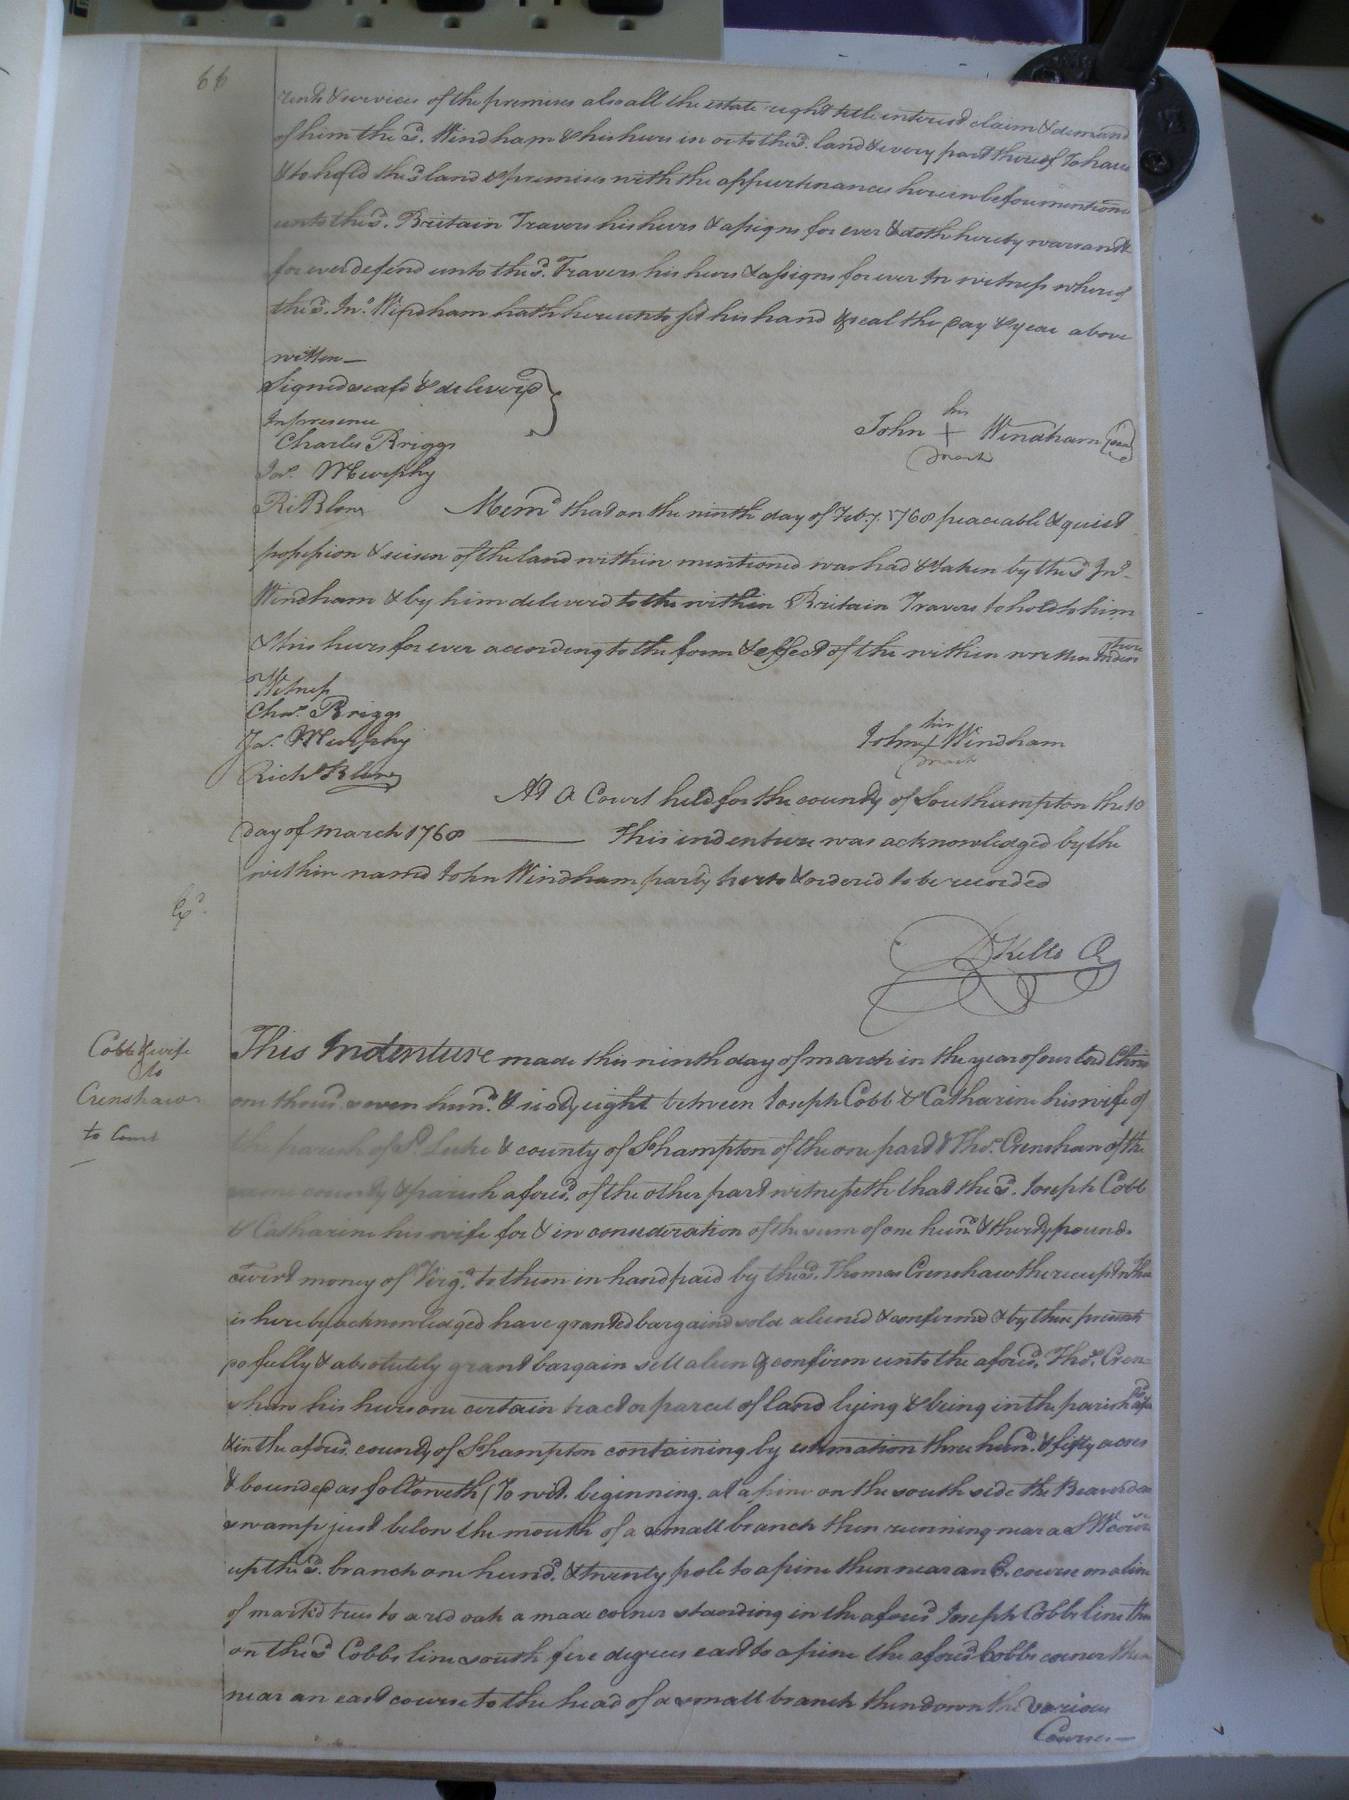 66
rents & services of the premises also all the estate right title interest claim & demand
of him the sd. Windham & his heirs in or to the sd. land & every part thereof To have
& to hold the sd land & premises with the appurtenances herein before mentiond
unto the sd. Britain Travers his heirs & assigns for ever & doth hereby warrand &
for ever defend unto the sd. Travers his heirs & assigns for ever In witness whereof
the sd. Jno. Windham hath hereunto set his hand & seal the day & year above
written —
Signed seald & deliverd
In presence
Charles Briggs
his
John + Windham (seal)
mark
Jas. Murphy
Ri Blow
Memd. that on the ninth day of Feby. 1768 peaceable & quiet
possession & seisen of the land within mentioned was had & taken by the sd Jno.
Windham & by him deliverd to the within Britain Travers to hold to him
& his heirs for ever according to the form & effect of the within written Inden
Witness
Chas. Briggs
Jas. Murphy
his
John + Windham
mark
Richd. Blow
At a Court held for the county of Southampton the 10
day of March 1768 — This indenture was acknowledged by the
within named John Windham party hereto & ordered to be recorded
Exd.
R Kello C
Cobb & wife
to
Crenshaw
to Court
This Indenture made this ninth day of march in the year of our Lord Christ
one thousd. seven hund. & sixty eight between Joseph Cobb & Catharine his wife of
the parish of St. Luke & county of So.hampton of the one part & Thos. Crenshaw of the
same county & parish aforesd. of the other part witnesseth that the sd. Joseph Cobb
& Catharine his wife for & in consideration of the sum of one hund. & thirty pounds
currt money of Virga. to them in hand paid by the sd. Thomas Crenshaw the receipt
is hereby acknowledged have granted bargaind sold aliened & confirmed & by these presents
so fully & absolutely grant bargain sell alien & confirm unto the aforesd. Thos. Cren=
shaw his heirs one certain tract or parcel of land lying & being in the parish
& in the aforesd. county of So.hampton containing by estimation three hund. & fifty acres
& bounded as followeth (To wit. beginning at a pine on the south side the Beaverdam
swamp just below the mouth of a small branch then running near a SW course
up the sd. branch one hund. & twenty pole to a pine then near an E. course on a line
of markd trees to a red oak a made corner standing in the aforesd Joseph Cobbs line then
on the sd Cobbs line south five degrees east to a pine the aforesd Cobbs corner then
near an east course to the head of a small branch then down the various
Courses —